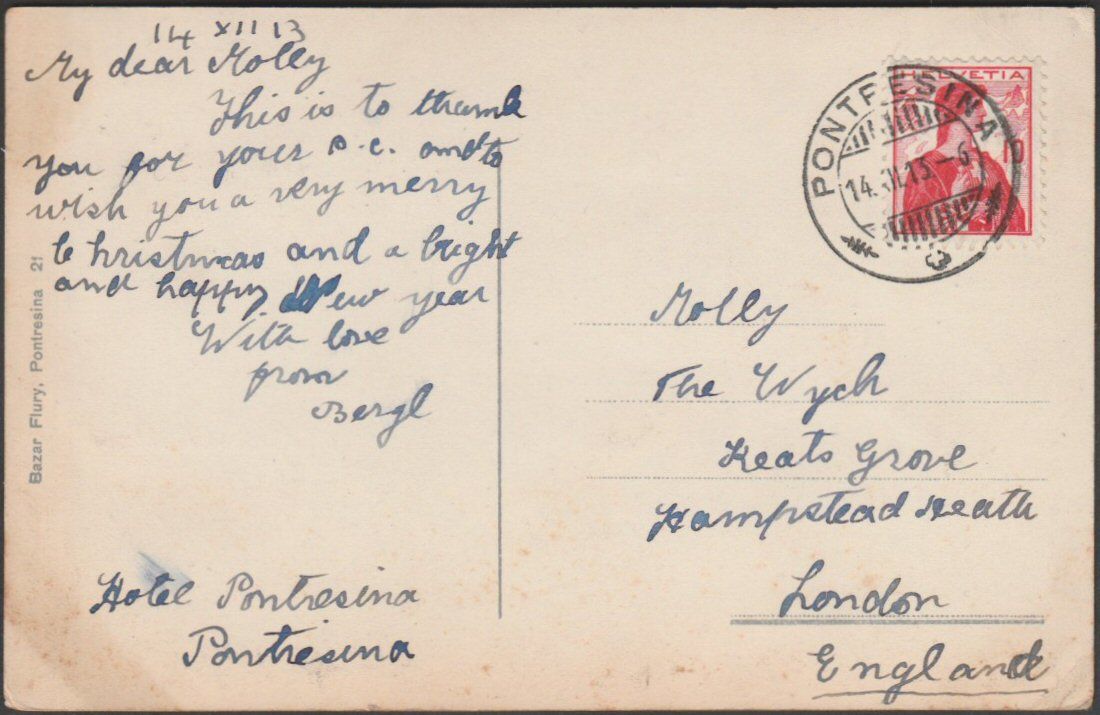 14 XII 13
My dear Molly
This is to thank
you for your p.c. and to
wish you a very merry
Christmas and a bright
and happy New year
With love
from
Bergl
Hotel Pontresina
Pontresina
Bazar Flury, Pontresina 2!
HELVETIA
PONTRESINA
14.XII.13.-6
Molly
The Wych
Keats Grove
Hampstead Heath
London
England